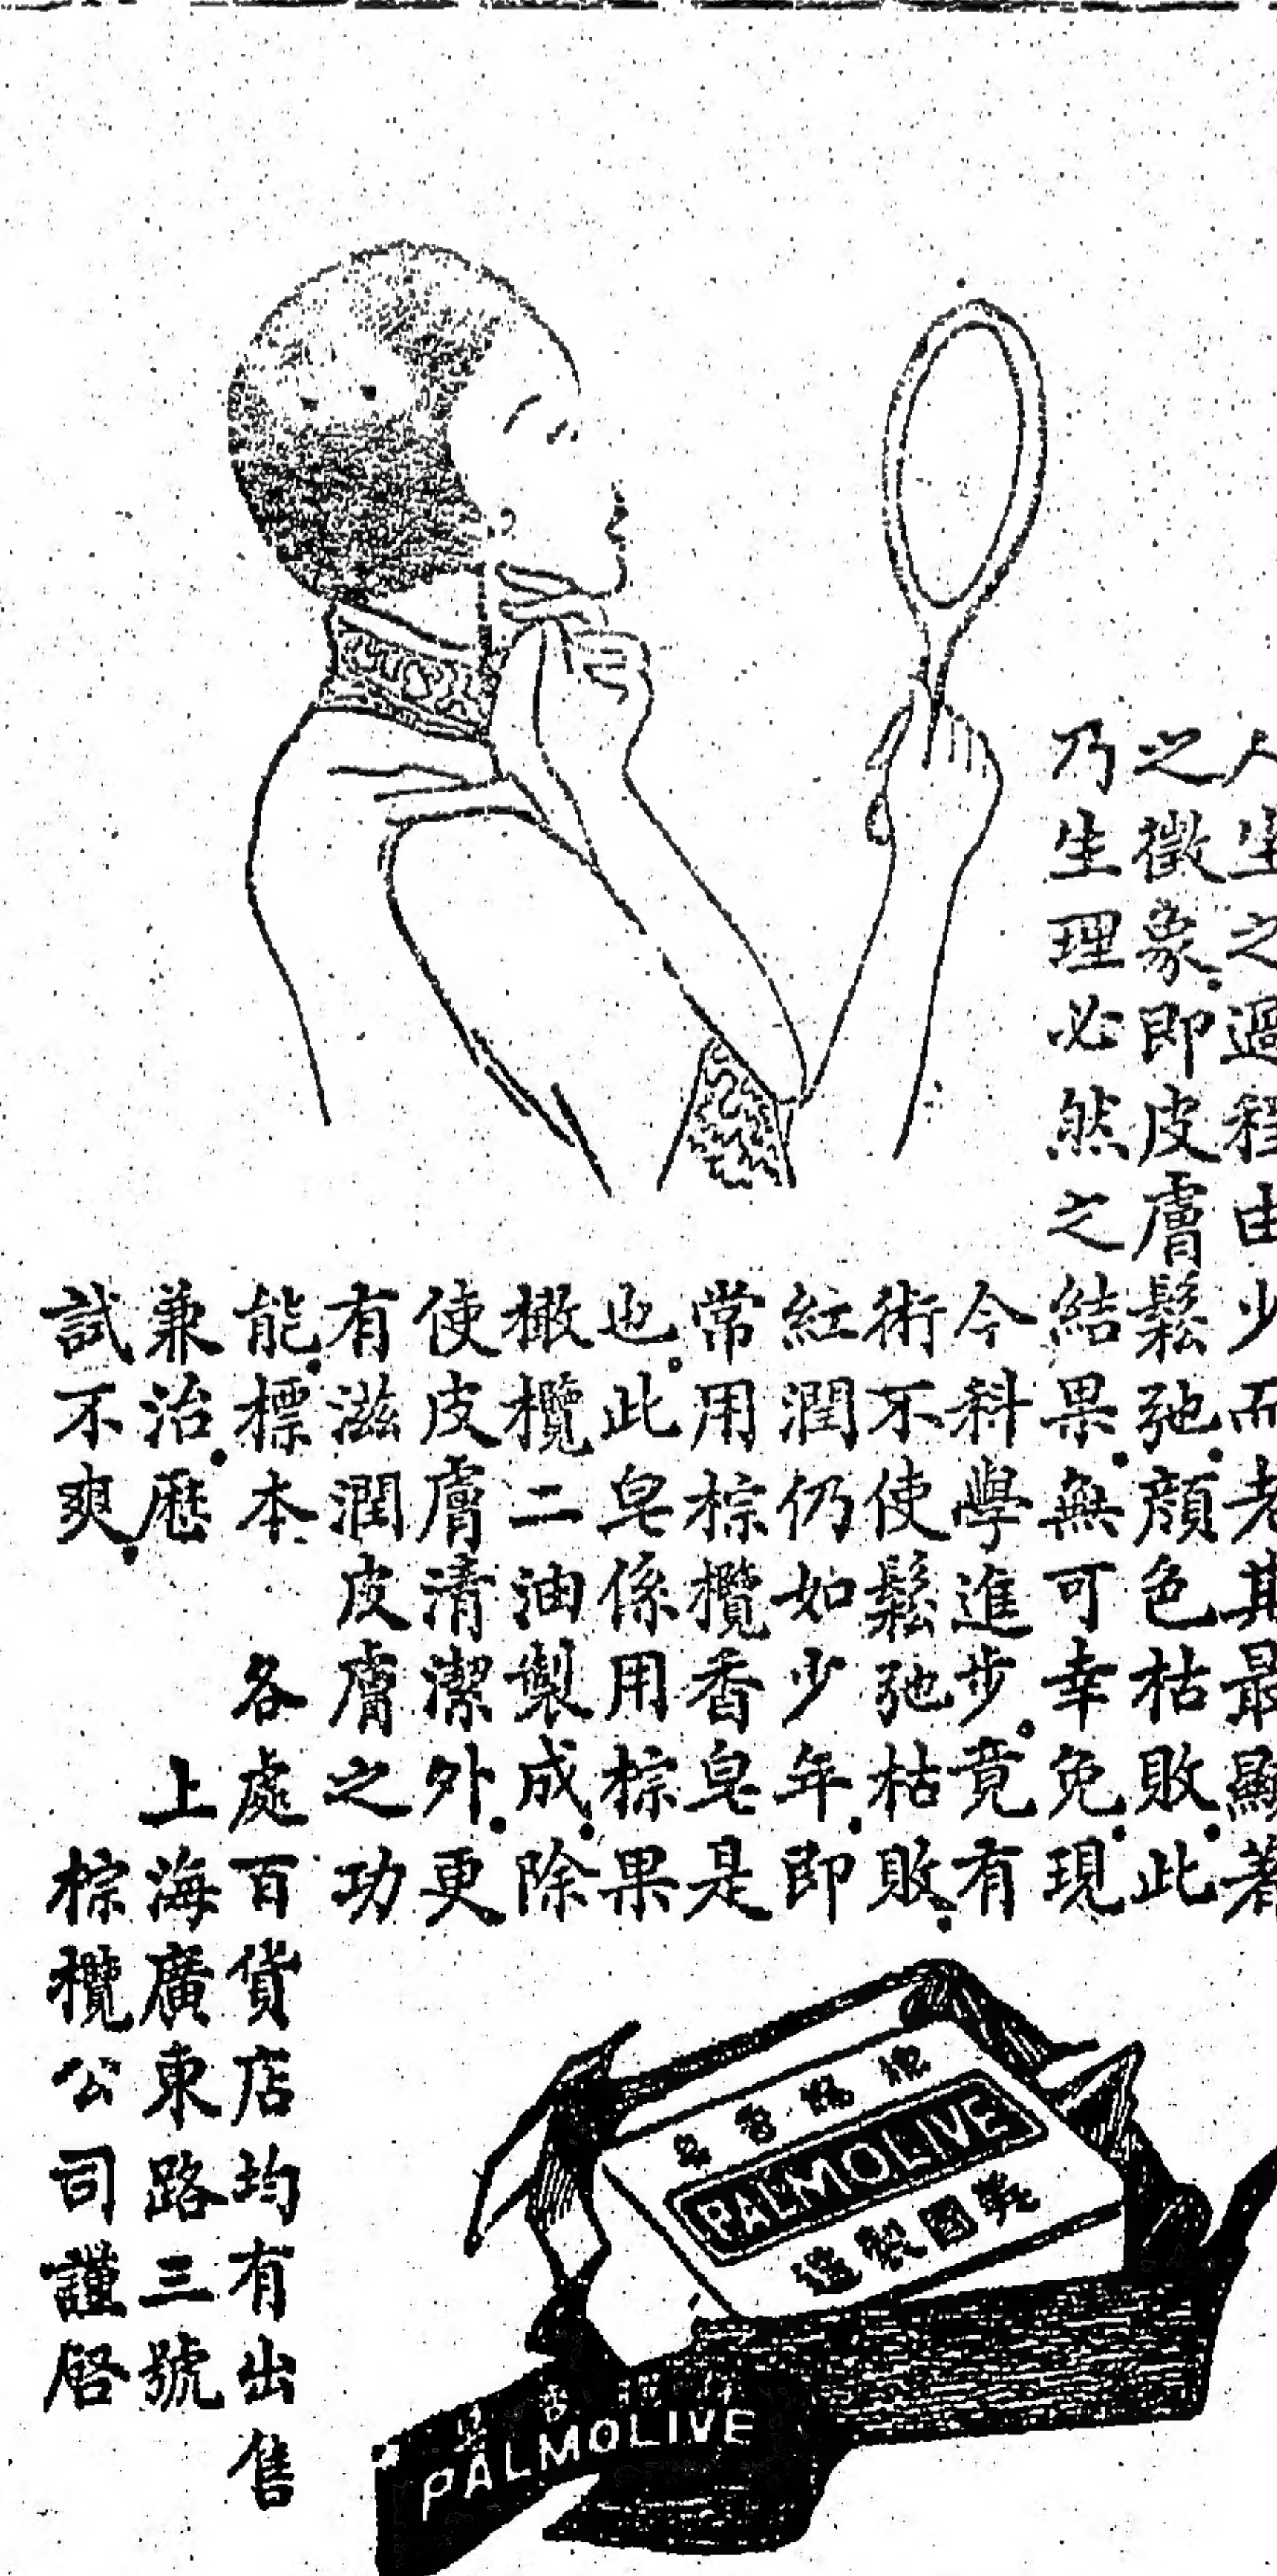 人生之過程由少而老其最顯著
之徵象即皮膚鬆弛顏色枯敗此
乃生理必然之結果無可幸免現
今科學進步竟有
術不使鬆弛枯敗
紅潤仍如少年即
常用棕欖香皂是
也此皂係用棕果
橄欖二油製成除
使皮膚清潔外更
有滋潤皮膚之功
能標本
兼治歷
試不爽
各處百貨店均有出售
上海廣東路三號
棕欖公司謹啓
皂香欖棕
PALMOLIVE
造製國美
PALMOLIVE